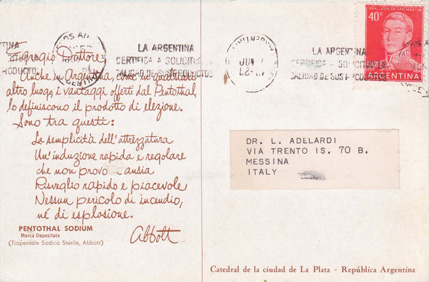 LA ARGENTINA
CERTIFICA A SOLICITUD
CALIDAD DE SUS PRODUCTOS
LA ARGENTINA
CERTIFICA A SOLICITUD
CALIDAD DE SUS PRODUCTOS
40c
ARGENTINA
Egregio Dottore,
Anche in Argentina, come in qualsiasi
altro luogo i vantaggi offerti dal Pentothal,
lo definiscono il prodotto di elezione.
Sono tra questi:
La semplicità dell'attrezzatura
Un'induzione rapida e regolare
che non provoca ansia
Risveglio rapido e piacevole
Nessun pericolo di incendio,
nè di esplosione.
Abbott
PENTOTHAL SODIUM
Marca Depositata
(Tiopentale Sodico Sterile, Abbott)
DR. L. ADELARDI
VIA TRENTO IS. 70 B.
MESSINA
ITALY
Catedral de la ciudad de La Plata - República Argentina